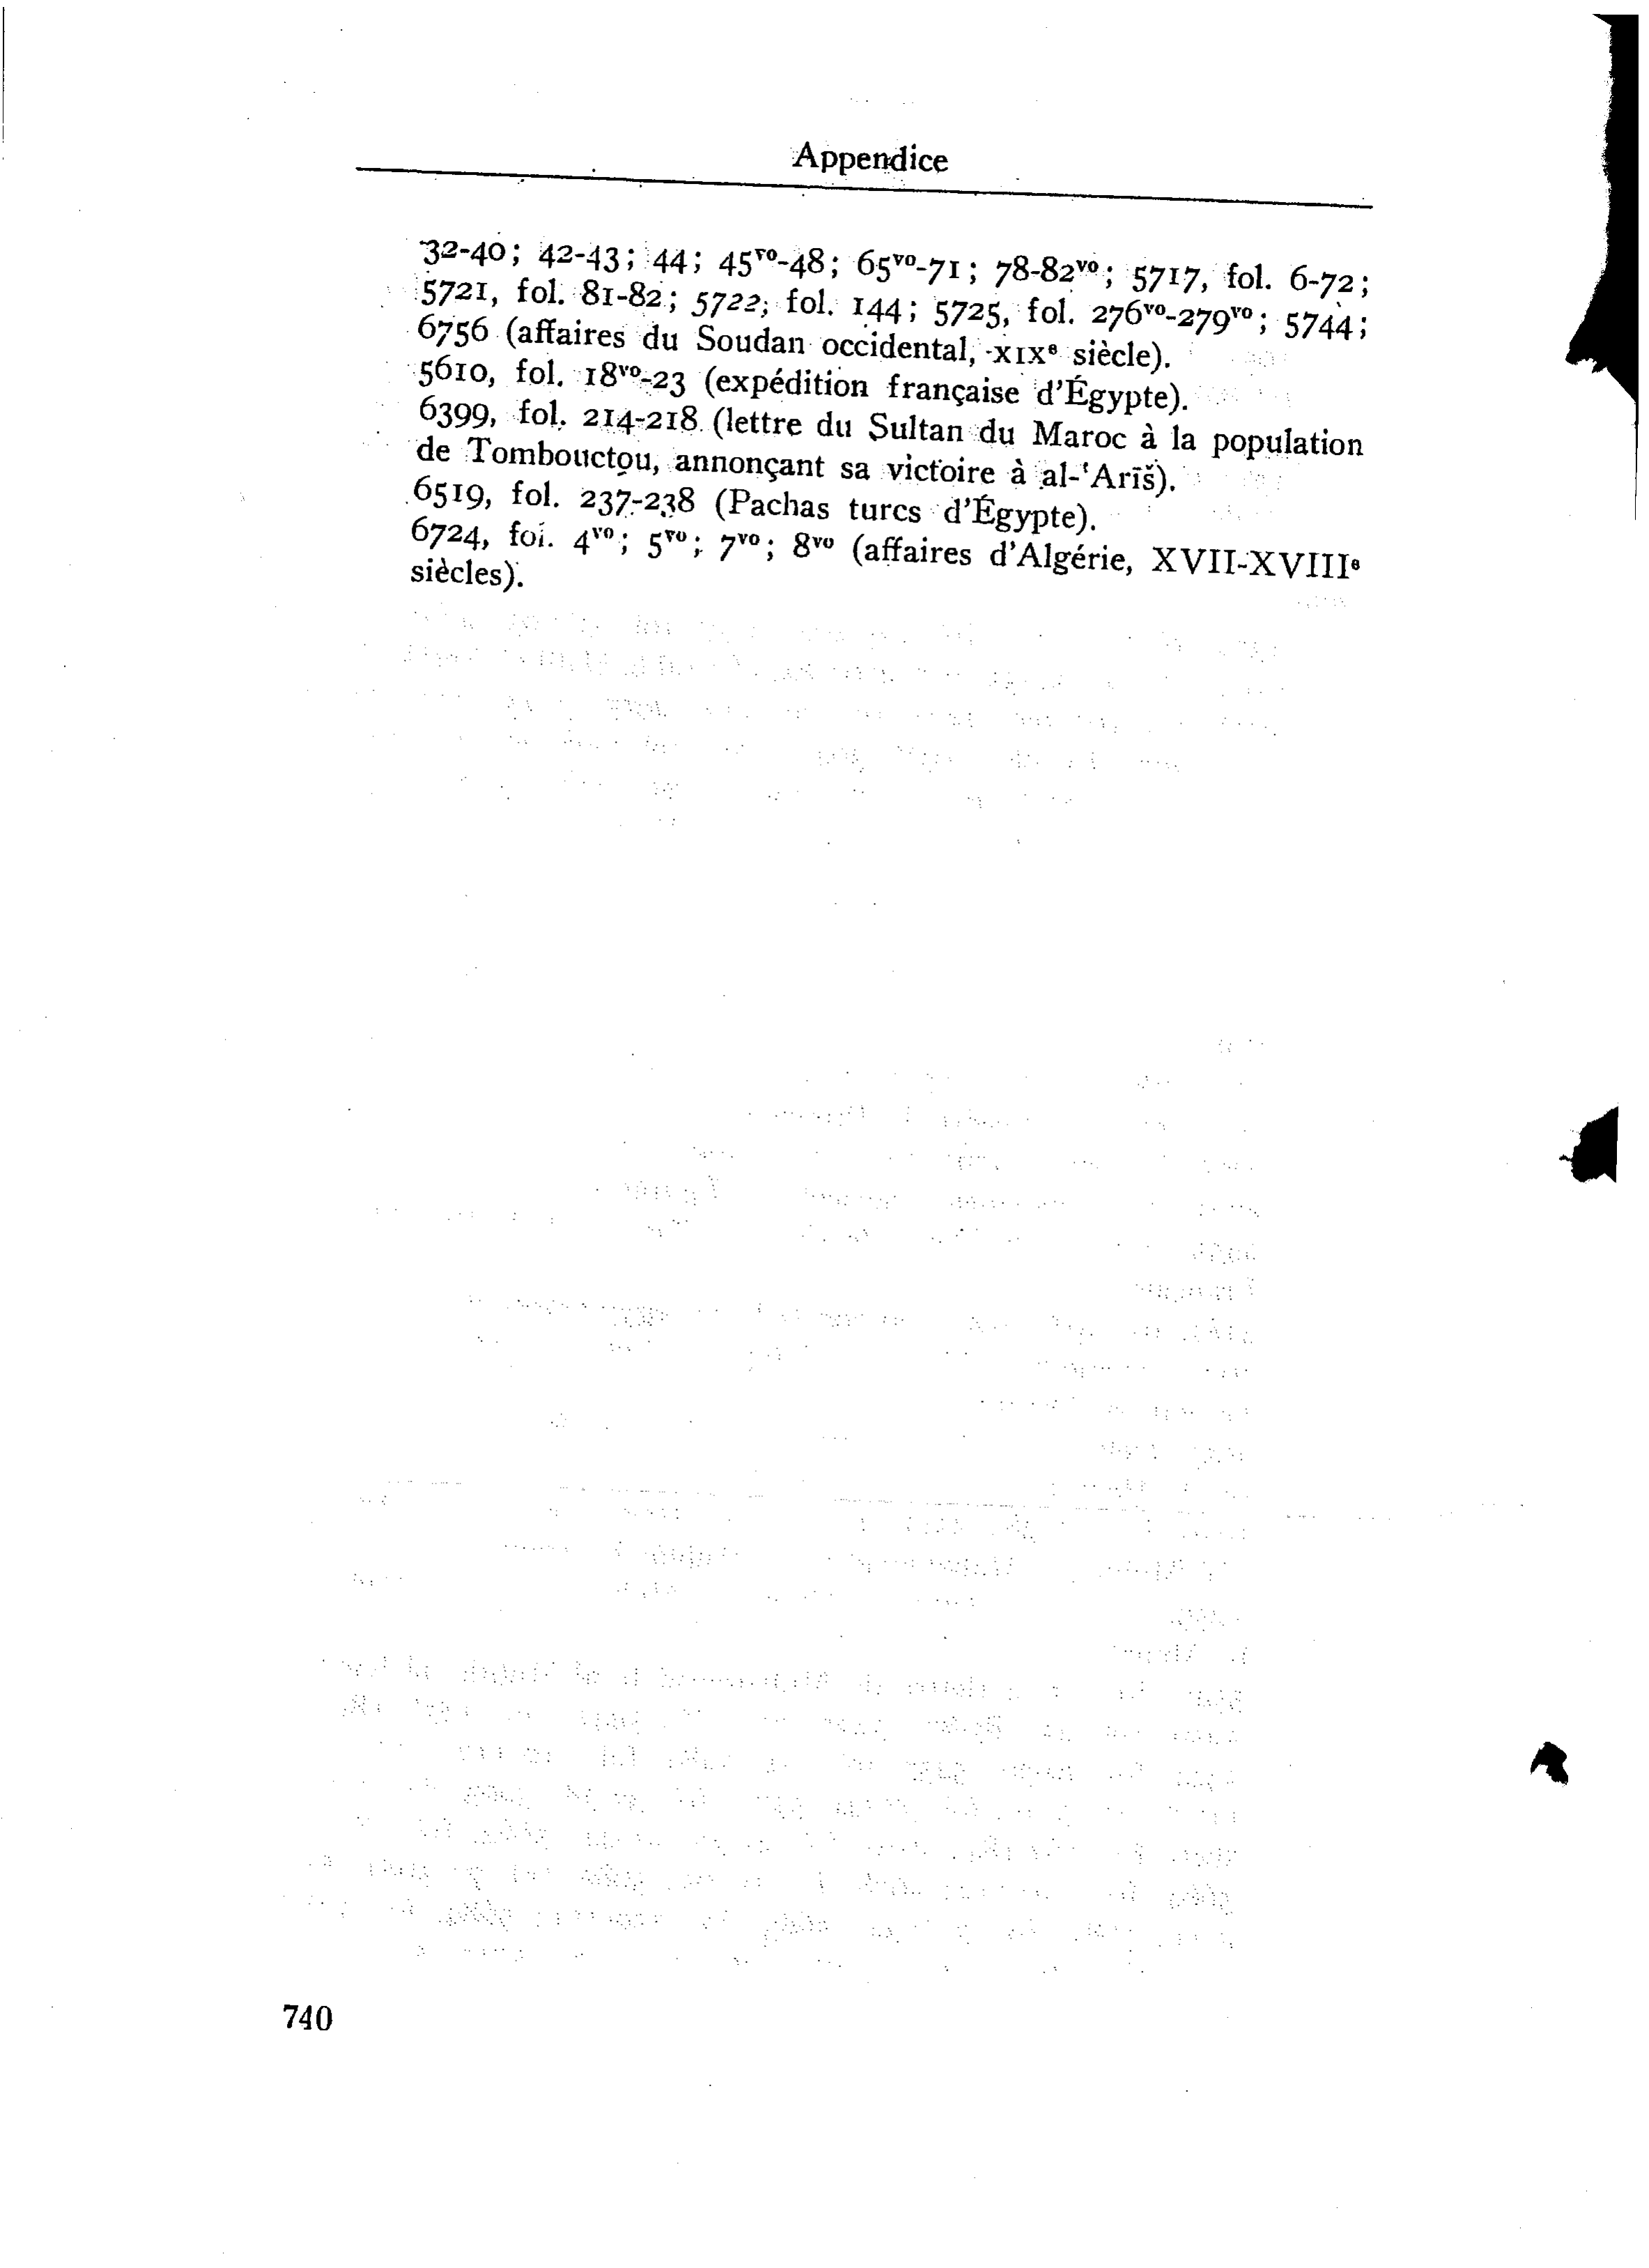 Appendice
32-40; 42-43; 44; 45ʳᵒ-48; 65ᵛᵒ-71; 78-82ᵛᵒ; 5717, fol. 6-72;
5721, fol. 81-82; 5722, fol. 144; 5725, fol. 276ᵛᵒ-279ᵛᵒ; 5744;
6756 (affaires du Soudan occidental, XIXᵉ siècle).
5610, fol. 18ᵛᵒ-23 (expédition française d'Égypte).
6399, fol. 214-218 (lettre du Sultan du Maroc à la population
de Tombouctou, annonçant sa victoire à al-ʿArīš).
6519, fol. 237-238 (Pachas turcs d'Égypte).
6724, fol. 4ᵛᵒ; 5ʳᵒ; 7ᵛᵒ; 8ᵛᵒ (affaires d'Algérie, XVII-XVIIIᵉ
siècles).
740